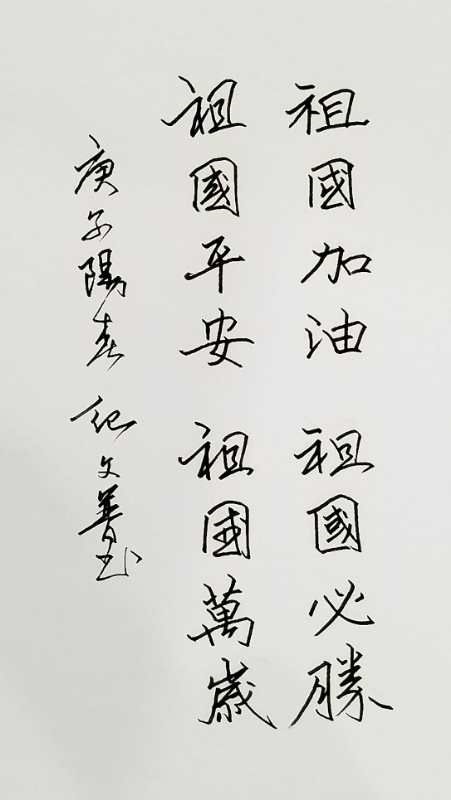 祖國加油 祖國必勝
祖國平安 祖國萬歲
庚子陽春 紀文善书